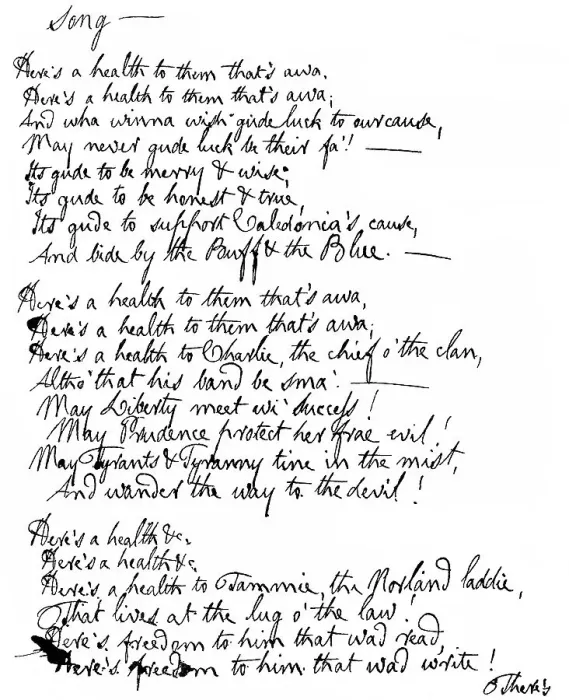 Song —
Here's a health to them that's awa,
Here's a health to them that's awa;
And wha winna wish gude luck to our cause,
May never gude luck be their fa'! —
Its gude to be merry & wise;
Its gude to be honest & true,
Its gude to support Caledonia's cause,
And bide by the Buff & the Blue. —
Here's a health to them that's awa,
Here's a health to them that's awa;
Here's a health to Charlie, the chief o' the clan,
Altho' that his band be sma'. —
May Liberty meet wi' success!
May Prudence protect her frae evil!
May Tyrants & Tyranny tine in the mist,
And wander the way to the devil!
Here's a health &c.
Here's a health &c.
Here's a health to Tammie, the Norland laddie,
That lives at the lug o' the law!
Here's freedom to him that wad read,
Here's freedom to him that wad write!
There's